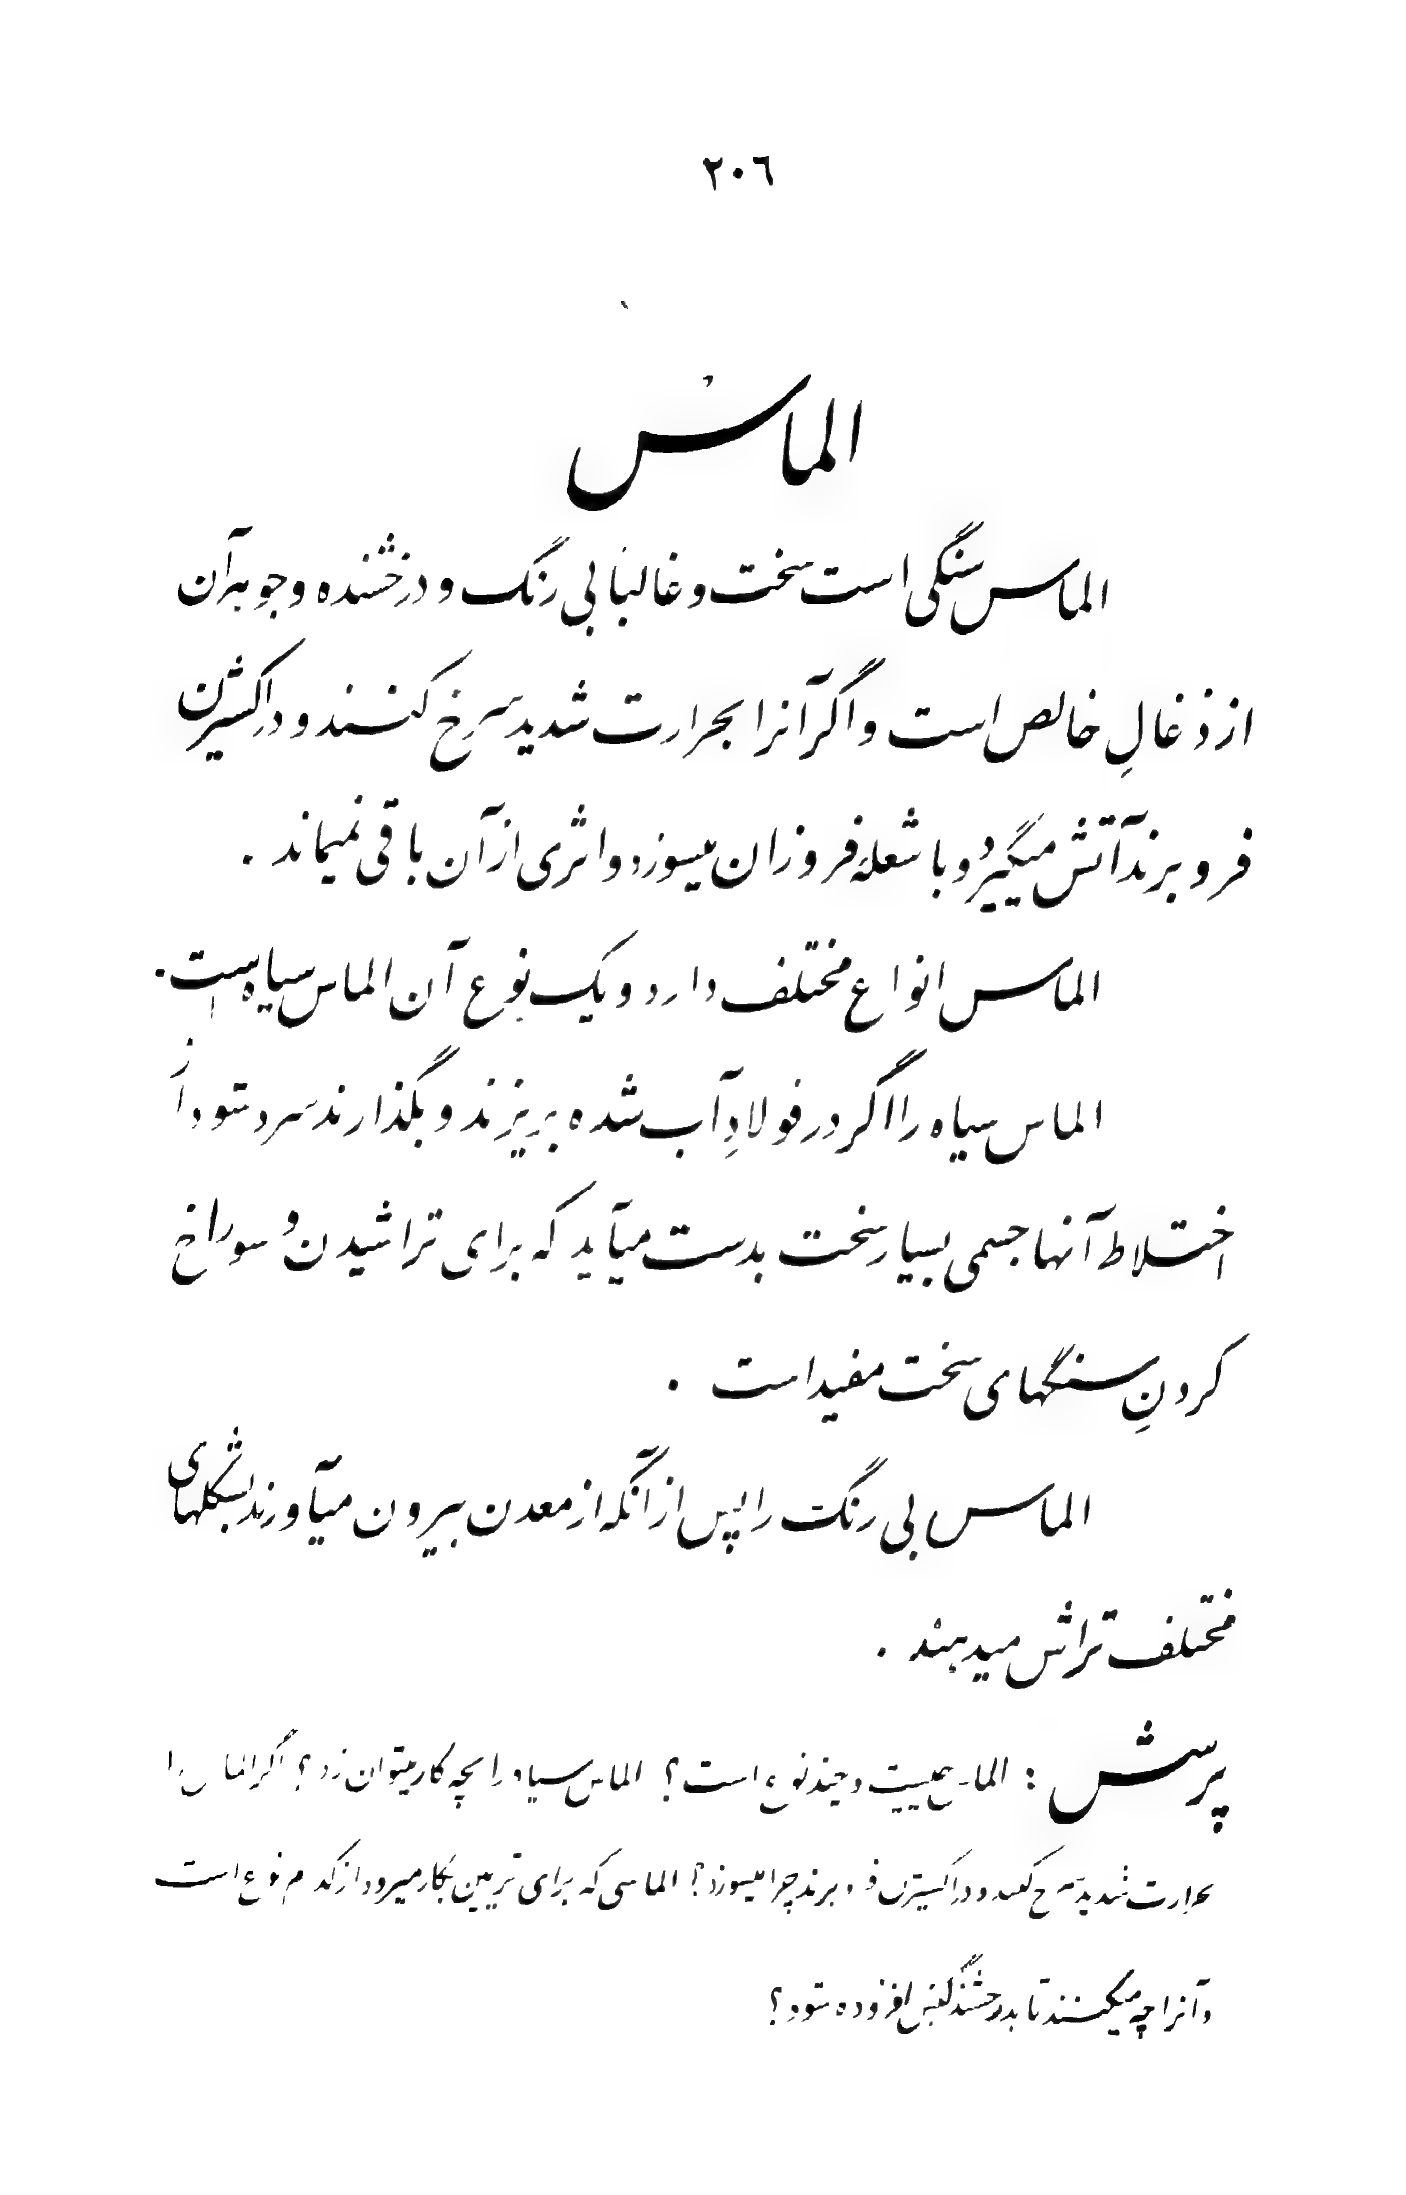 ٢٠٦
الماس
الماس سنگی است سخت و غالباً بی رنگ و درخشنده و جوهر آن
از ذغالِ خالص است و اگر آنرا بحرارت شدید سرخ کنند و در اکسیژن
فرو برند آتش میگیرد و با شعلهٔ فروزان میسوزد و اثری از آن باقی نمیماند .
الماس انواع مختلف دارد و یک نوع آن الماس سیاه است .
الماس سیاه را اگر در فولادِ آب شده بریزند و بگذارند سرد شود از
اختلاط آنها جسمی بسیار سخت بدست میآید که برای تراشیدن و سوراخ
کردنِ سنگهای سخت مفید است .
الماس بی رنگ را پس از آنکه از معدن بیرون میآورند بشکلهای
مختلف تراش میدهند .
پرسش : الماس چیست و چند نوع است ؟ الماس سیاه را بچه کار میتوان زد ؟ اگر الماس را
بحرارت شدید سرخ کنند و در اکسیژن فرو برند چرا میسوزد ؟ الماسی که برای تزیین بکار میرود از کدام نوع است
و آنرا چه میکنند تا بدرخشندگیش افزوده شود ؟